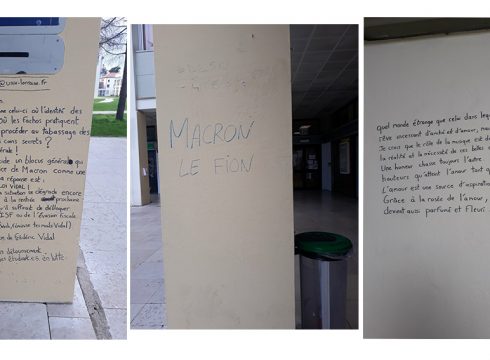 @univ-lorraine.fr
celle-ci où l'identité des
où les fachos pratiquent
procéder au tabassage des
cons secrets ?
rale !
ide un blocus général qui
ice de Macron comme une
a réponse est :
VIDAL !
situation se dégrade encore
à la rentrée prochaine
qu'il suffirait de débloquer
ISF ou de l'évasion fiscale
Vidal).
de Frédéric Vidal
détournement
en lutte.
MACRON
LE FION
Quel monde étrange que celui dans
rêve incessant d'amitié et d'amour,
Je crois que le rôle de la musique est
la réalité et la nécessité de ces belles
Une humeur chasse toujours l'autre
hauteurs qu'atteint l'amour tout
L'amour est une source d'aspiration
Grâce à la rosée de l'amour,
devient aussi parfumé et fleuri